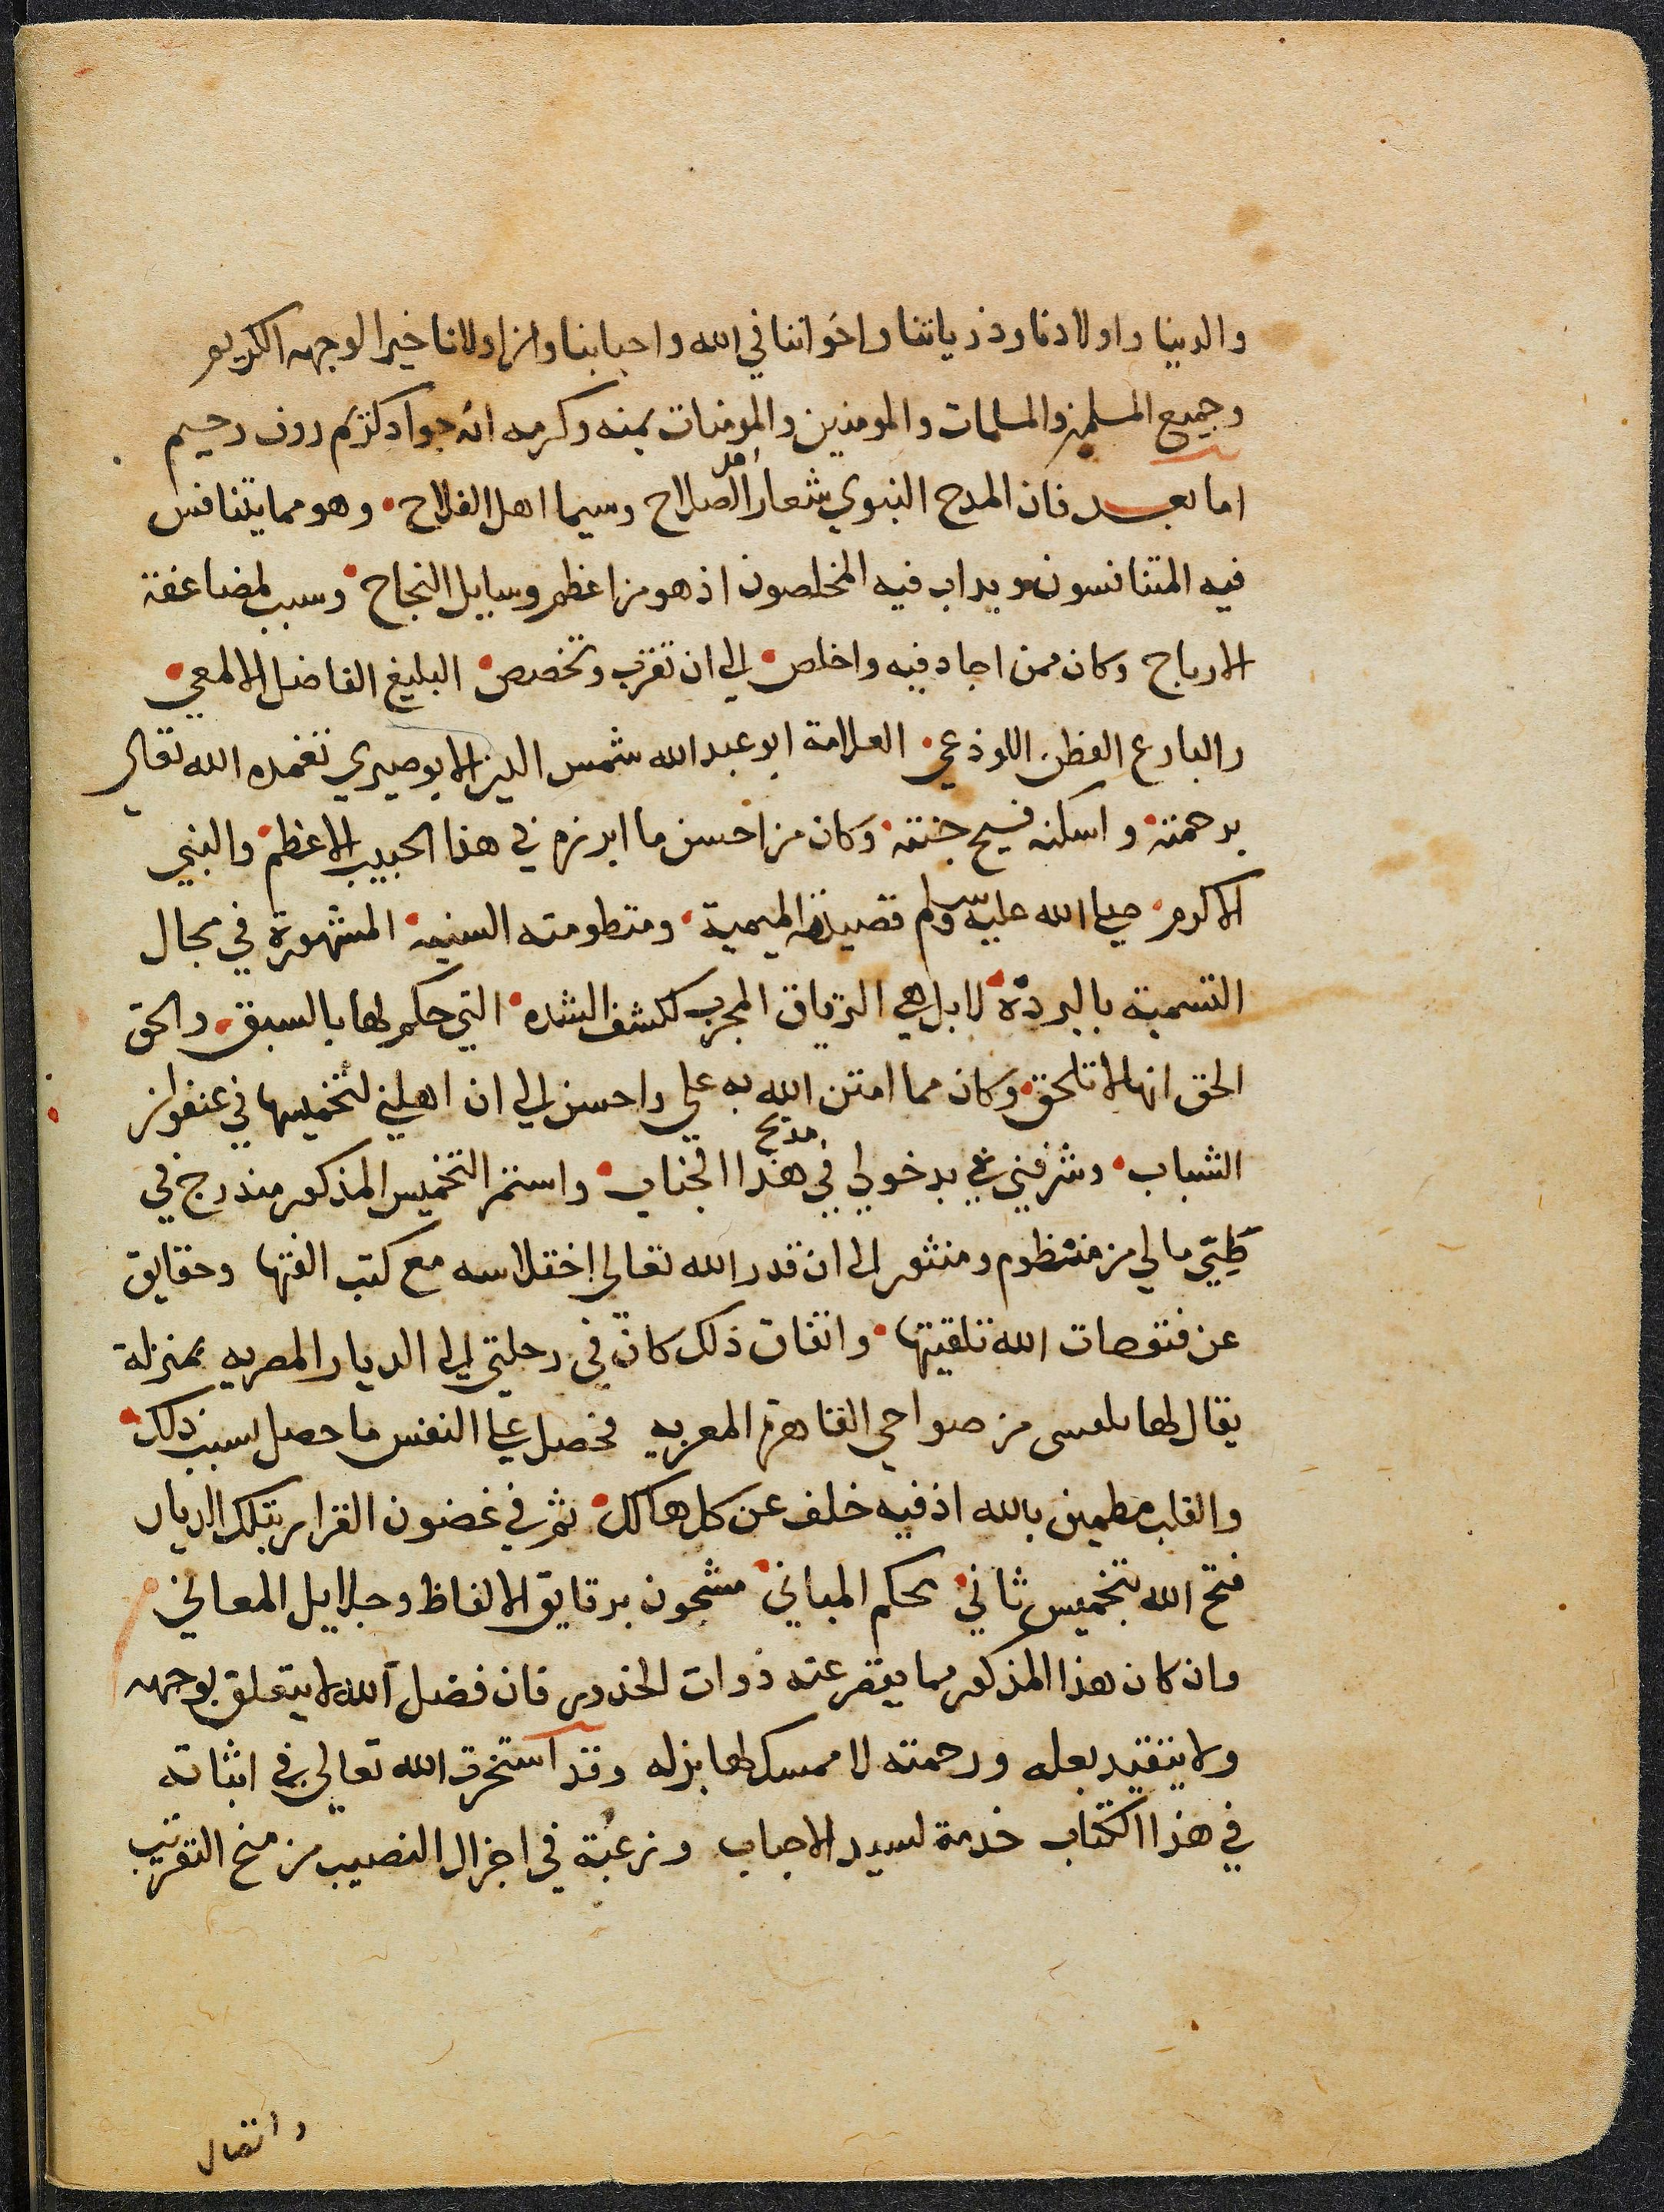 والدينا واولادنا وذرياتنا واخواننا في الله واحبابنا وان اولانا خيرا لوجهه الكريم
وجميع المسلمين والمسلمات والمومنين والمومنات بمنه وكرمه انه جواد كريم روف رحيم
اما بعد فان المدح النبوي شعار اهل الصلاح وسيما اهل الفلاح وهو مما يتنافس
فيه المتنافسون ويداب فيه المخلصون اذ هو من اعظم وسايل النجاح وسبب لمضاعفة
الارباح وكان ممن اجاد فيه واخلص الي ان تقرب وتخصص البليغ الفاضل الالمعي
والبارع الفطن اللوذعي العلامة ابو عبد الله شمس الدين الابوصيري تغمده الله تعالي
برحمته واسكنه فسيح جنته وكان من احسن ما ابرزه في هذا الحبيب الاعظم والنبي
الاكرم صلي الله عليه وسلم قصيدته الميمية ومنظومته السنيه المشهورة في مجال
التسمية بالبردة لا بل هي الترياق المجرب لكشف الشده التي حكم لها بالسبق والحق
الحق انها لا تلحق وكان مما امتن الله به علي واحسن الي ان اهلني لتخميسها في عنفوان
الشباب وشرفني بدخولي في مديح هذا الجناب واستمر التخميس المذكور مندرج في
طيي مالي من منظوم ومنثور الى ان قدر الله تعالى اختلاسه مع كتب الفتها وحقايق
عن فتوحات الله تلقيتها واتفاق ذلك كان في رحلتي الى الديار المصريه بمنزلة
يقال لها بلعسى من ضواحي القاهرة المعزيه فحصل علي النفس ما حصل بسبب ذلك
والقلب مطمين بالله اذ فيه خلف عن كل هالك ثم في غضون القرار بتلك الديار
فتح الله بتخميس ثاني محكم المباني مشحون برقايق الالفاظ وجلايل المعاني
وان كان هذا المذكور مما يقر عنه ذوات الخدور فان فضل الله لا يتعلق بوجهه
ولا يتقيد بعله ورحمته لا ممسك لها بزله وقد استخرت الله تعالي في اثباته
في هذا الكتاب خدمة لسيد الاحباب ورغبة في اجزال النصيب من منح التقريب
واتصال